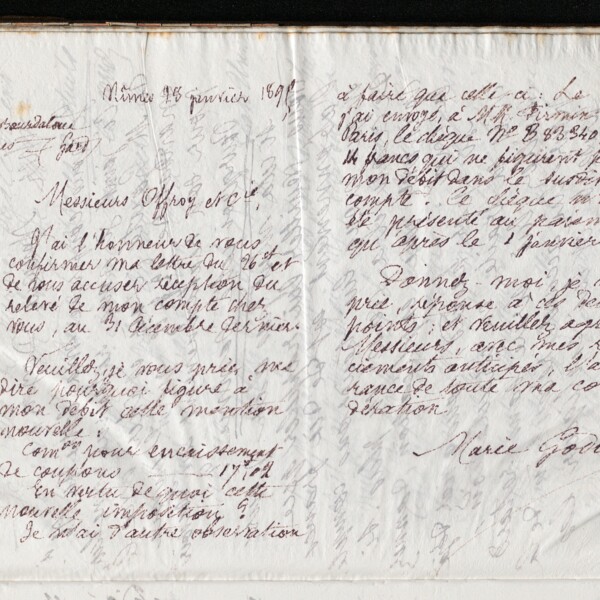 Nîmes 28 janvier 189
Bourdaloue
Gard
Messieurs Offroy et Cie,
J'ai l'honneur de vous
confirmer ma lettre du 26 et
de vous accuser réception du
relevé de mon compte chez
vous, au 31 décembre dernier.
Veuillez, je vous prie, me
dire pourquoi figure à
mon débit cette mention
nouvelle:
Comon pour encaissement
de coupons 17f04
En vertu de quoi cette
nouvelle imposition?
Je n'ai d'autre observation
à faire que celle-ci: Le
j'ai envoyé, à MM. Firmin
Paris, le chèque No B 83340
francs qui ne figurent
mon débit dans le susdit
compte. Ce chèque n'
été présenté au
qu'après le 1 janvier
Donnez-moi, je
prie, réponse à ces
points; et veuillez
Messieurs, avec mes
ciements anticipés, l'
rance de toute ma co
dération.
Marie God